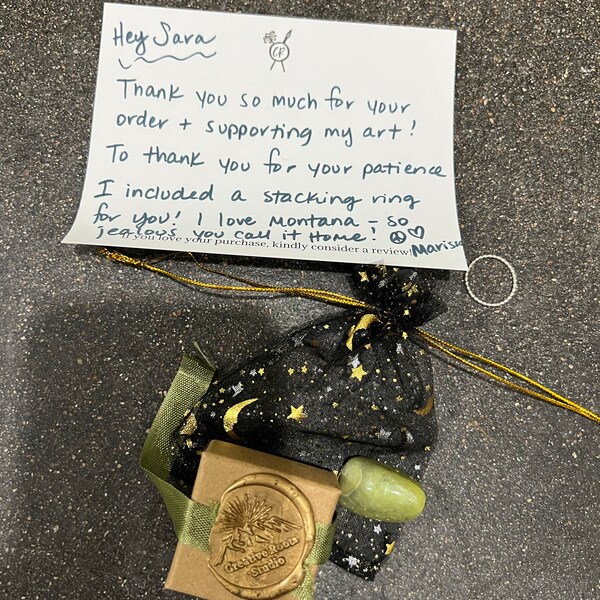 Hey Sara
CR
Thank you so much for your
order + supporting my art!
To thank you for your patience
I included a stacking ring
for you! I love Montana - so
jealous you call it Home! ☮♡
If you love your purchase, kindly consider a review!
Marissa
Creative Roots
Studio